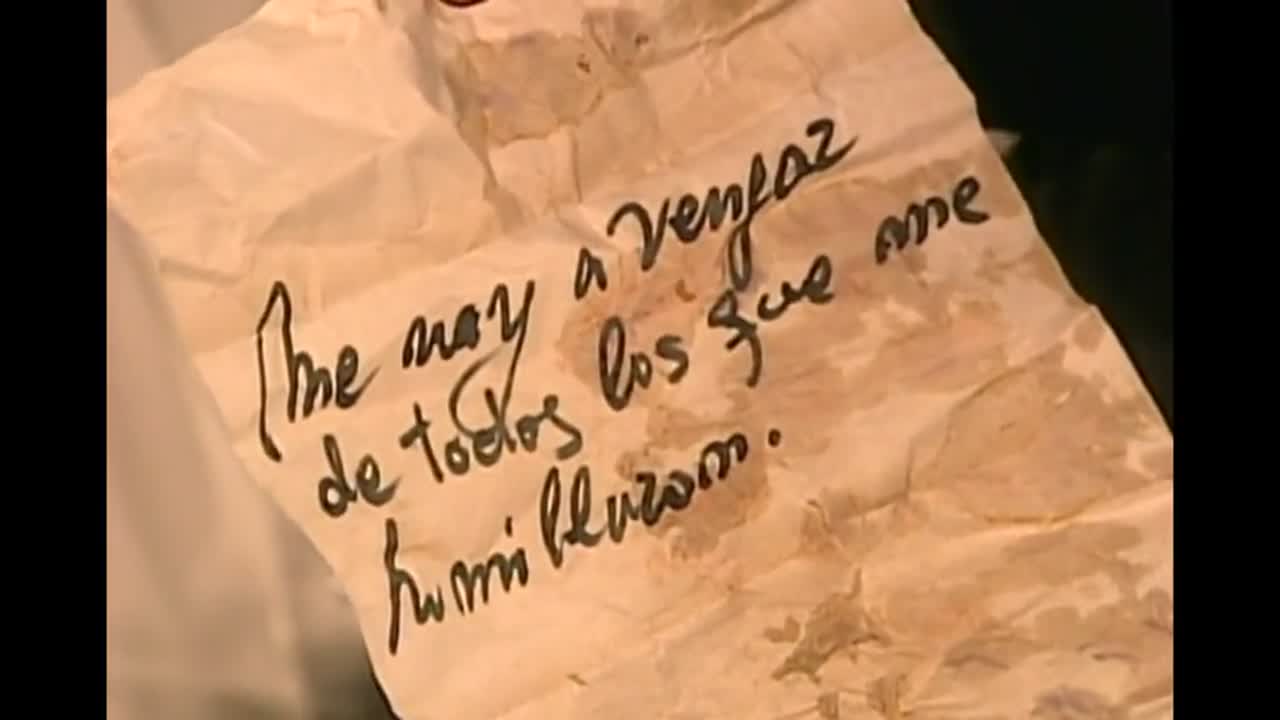 Me voy a vengar
de todos los que me
humillaron.